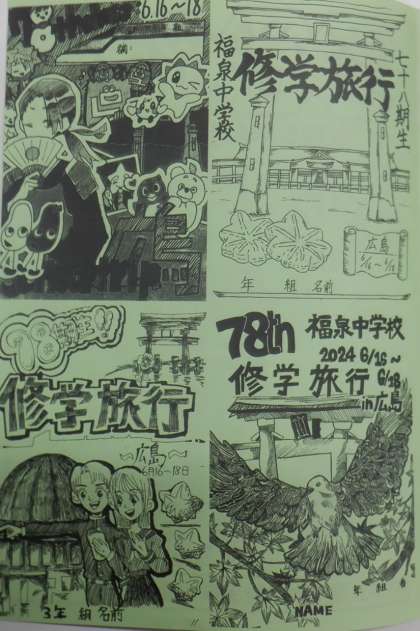 78
6.16～18
福泉中学校
修学旅行
七十八期生
広島
6/16～6/18
年 組 名前
78期生!!
修学旅行
～広島～
6月16～18日
3年 組 名前
78th 福泉中学校
2024 6/16～
6/18
修学旅行
in広島
年 組
NAME